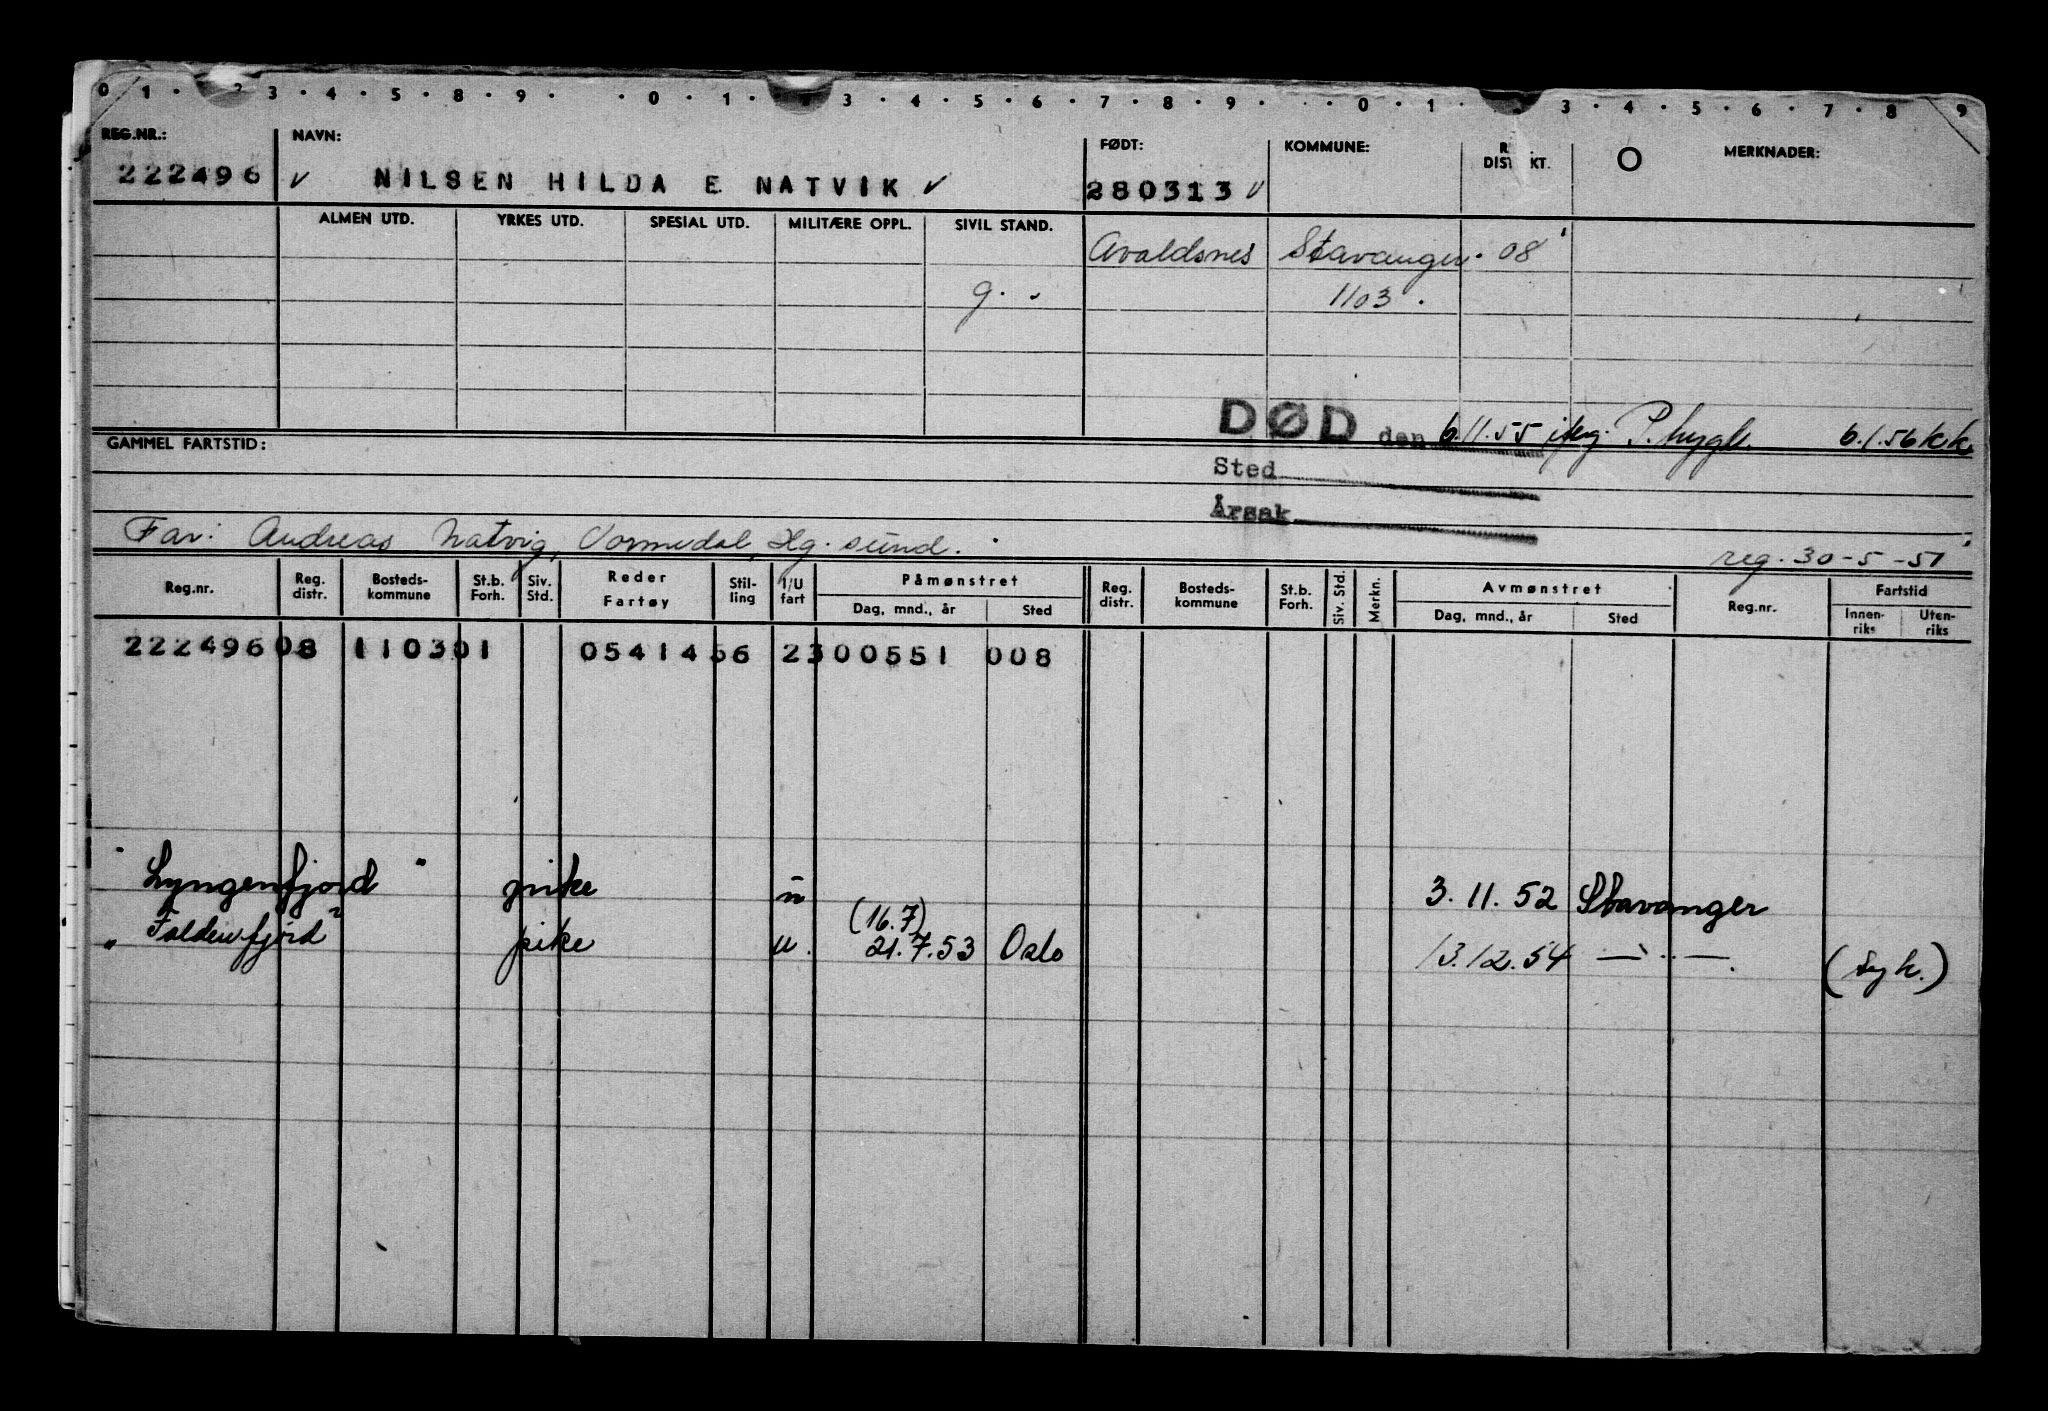 0 1 · 2 3 · 4 · 5 · 8 · 9 · · 0 · 1 · 3 · 4 · 5 · 6 · 7 · 8 · 9 · · 0 · 1 · 3 · 4 · 5 · 6 · 7 · 8 9
REG.NR.: NAVN: FØDT: KOMMUNE: R DIST KT. O MERKNADER:
222496 √ NILSEN HILDA E NATVIK √ 280313 √
ALMEN UTD. YRKES UTD. SPESIAL UTD. MILITÆRE OPPL. SIVIL STAND.
Avaldsnes Stavanger. 08
g. 1103.
DØD den 6.11.55 6.1.56 k.k.
GAMMEL FARTSTID:
Sted
Årsak
Far: Andreas Natvig, Vormedal, Hg.sund. reg. 30-5-51
Reg.nr. Reg. distr. Bosteds-kommune St.b. Forh. Siv. Std. Reder Fartøy Stil-ling I/U fart Påmønstret Dag, mnd., år Sted Reg. distr. Bosteds-kommune St.b. Forh. Siv. Std. Merkn. Avmønstret Dag, mnd., år Sted Reg.nr. Fartstid Innen-riks Uten-riks
222496 08 1103 01 054 14 56 2 300551 008
"Lyngenfjord" pike u 3.11.52 Stavanger
(16.7)
"Foldenfjord" pike u. 21.7.53 Oslo 13.12.54 —"— (syk.)